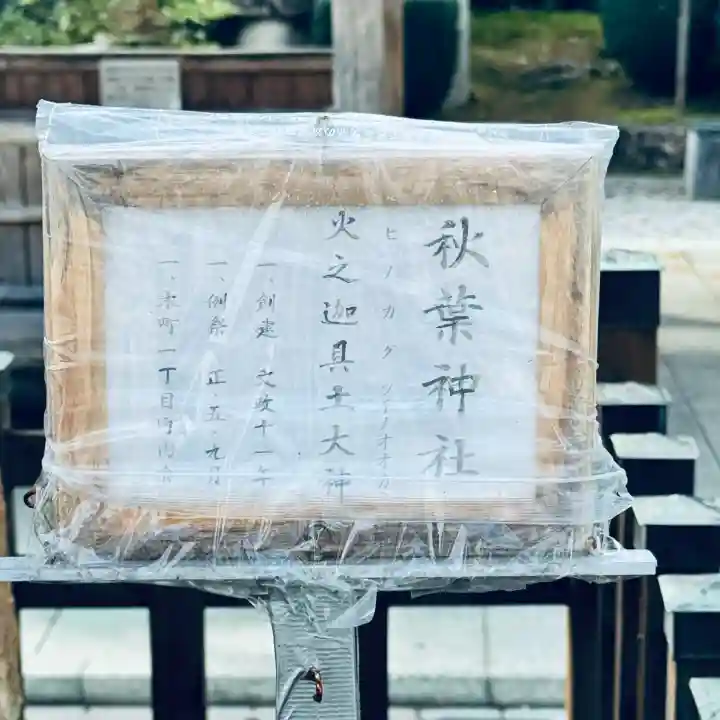 秋葉神社
ヒノカグツーノオオカ
火之迦具土大神
一、創建 文政十一年
一、例祭 正、五、九月
一、本町一丁目町内会